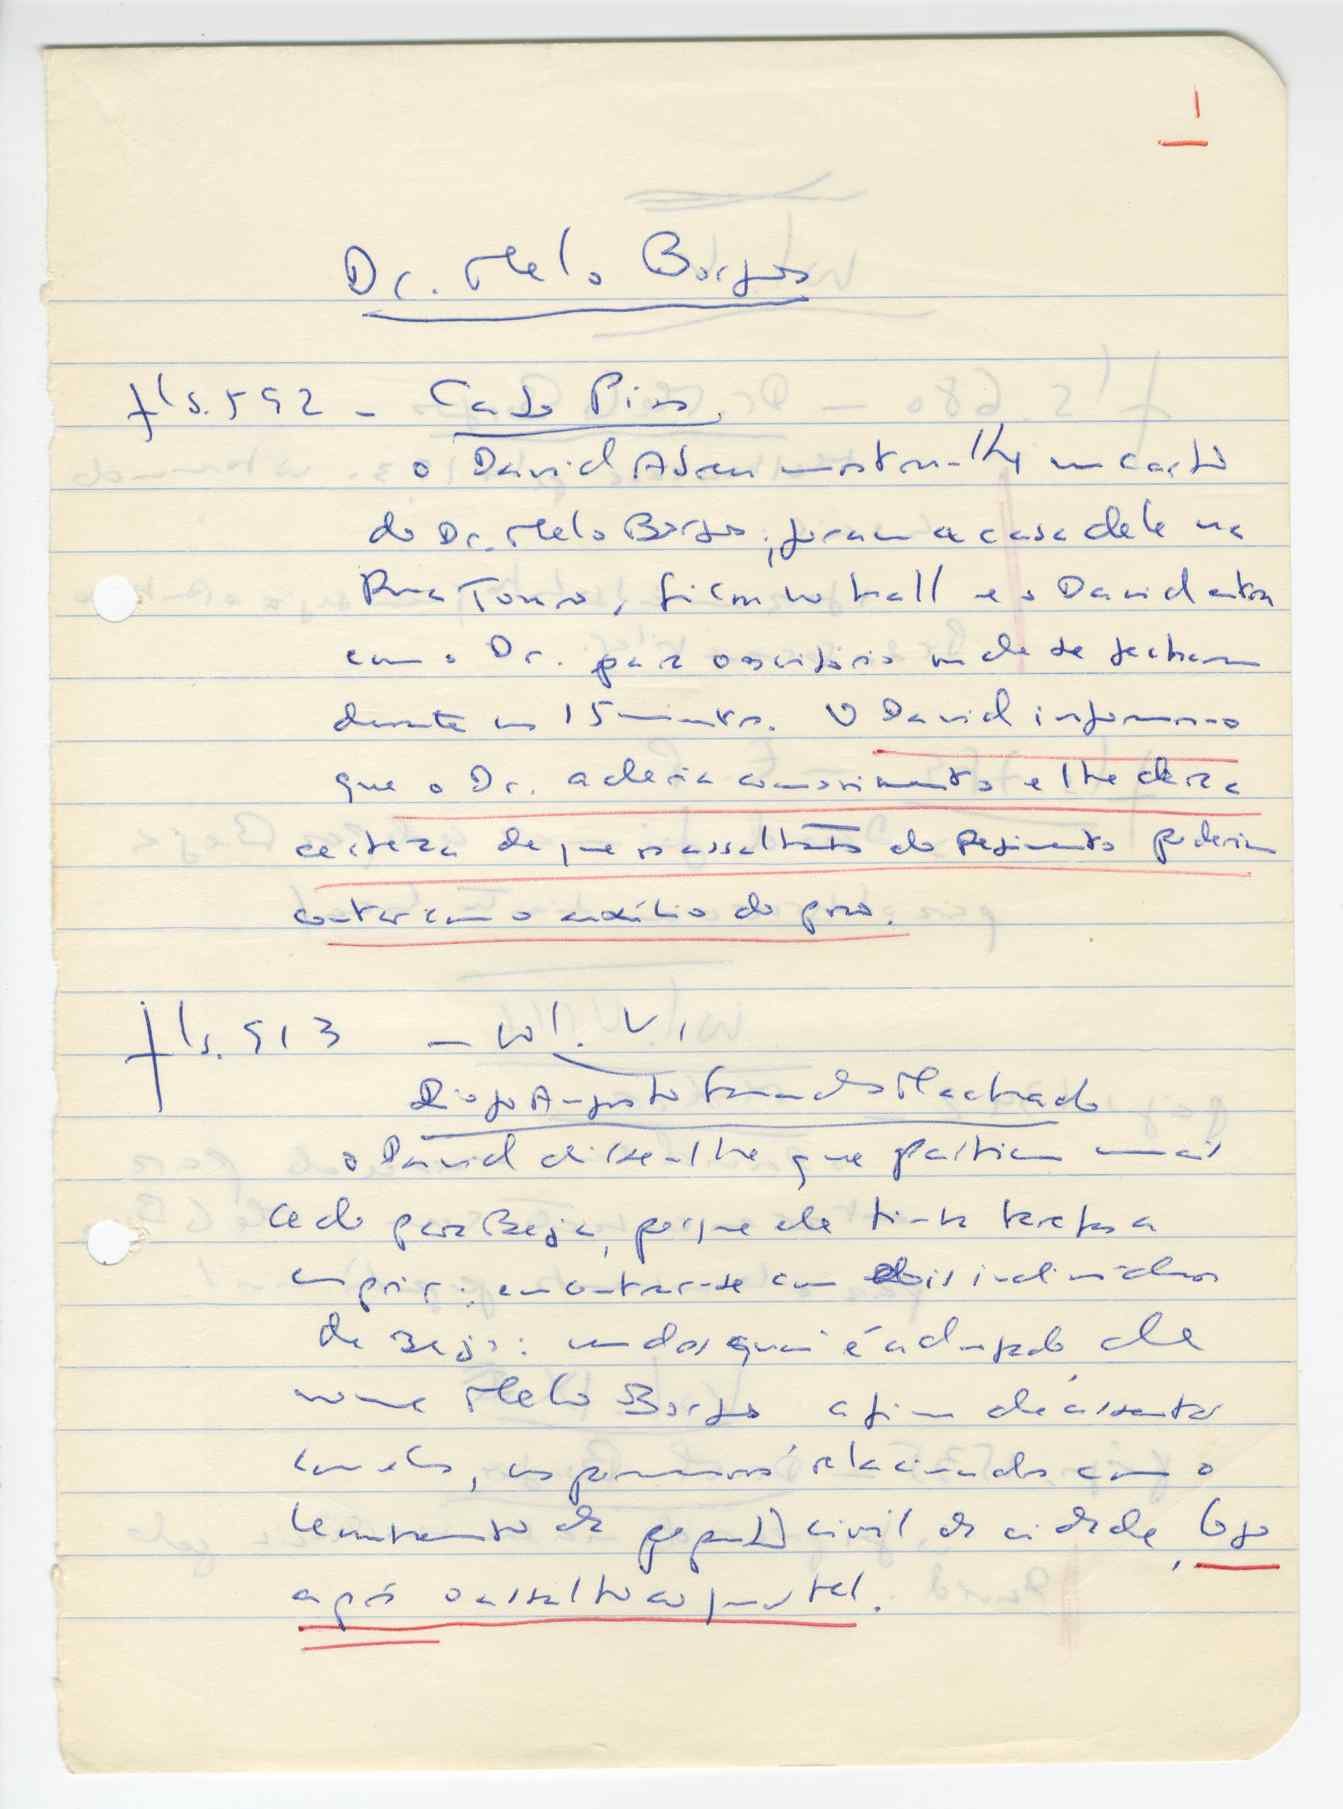 1
Dr. Melo Borges
fls. 592 - Cado Pires.
o David Abreu mostrou-lhe um cartão
do Dr. Melo Borges; foram a casa dele na
Rua, ficou no hall e o David entrou
com o Dr. para o escritório onde se fecharam
durante uns 15 minutos. O David informou-o
que o Dr. aderia ao movimento e lhe dera a
certeza de que os assaltantes do Regimento poderiam
contar com o auxílio do povo.
fls. 513 - vol. VI
Diogo Augusto Machado
o David disse-lhe que partia mais
cedo para Beja, porque ele tinha tarefas a
cumprir: encontrar-se com dois indivíduos
de Beja: um dos quais é advogado de
nome Melo Borges a fim de assentar
com eles, uns pormenores relacionados com o
levantamento da população civil da cidade, logo
após o assalto ao quartel.